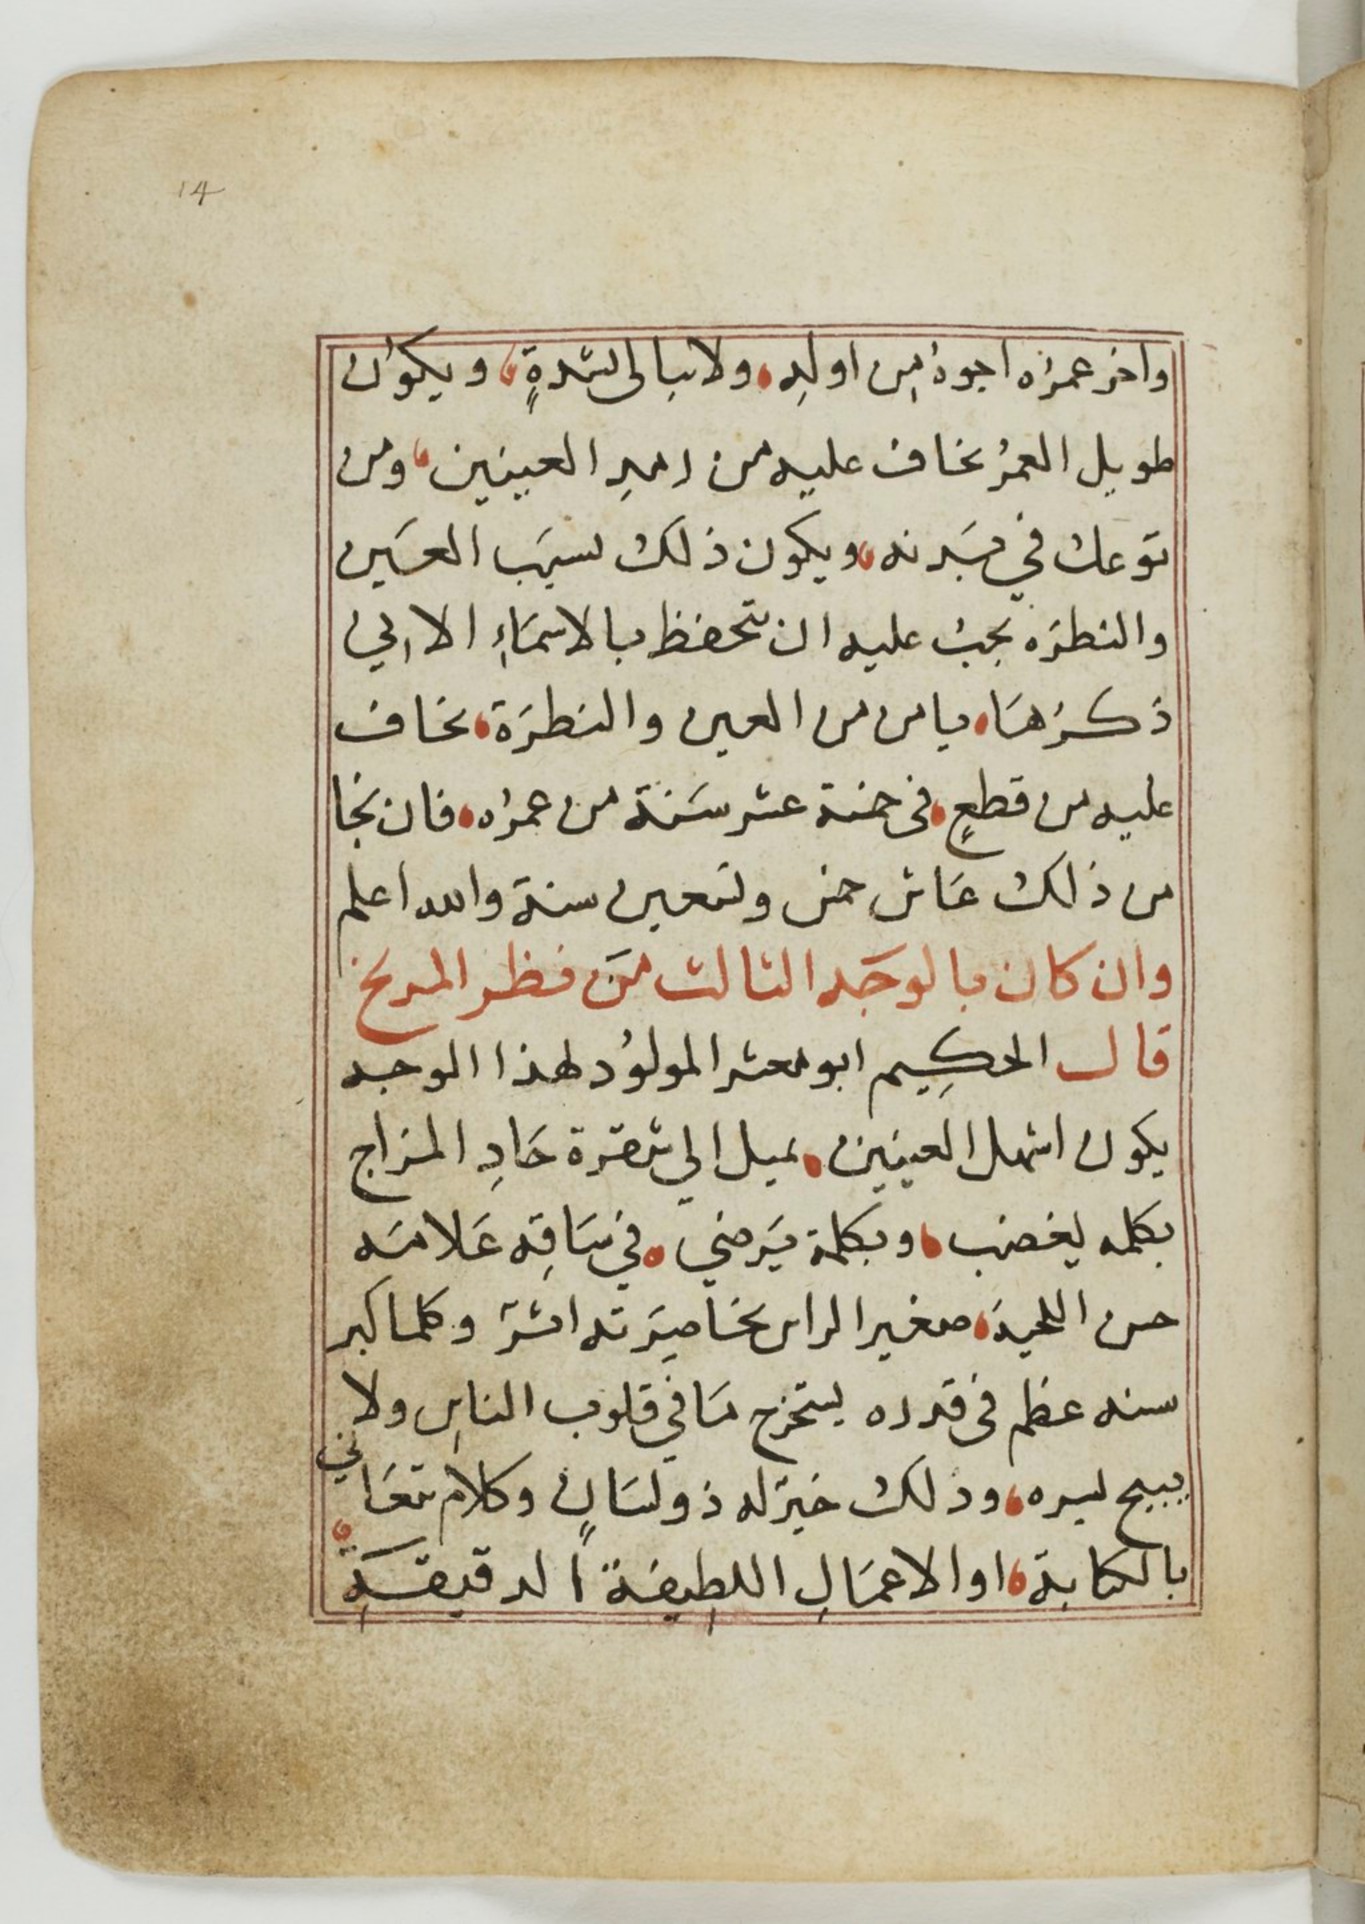 14
واخر عمره اجود من اوله، ولا يبالى بشدةٍ، ويكون
طويل العمر يخاف عليه من رمد العينين، ومن
توعك في بدنه، ويكون ذلك بسبب العين
والنطره يجب عليه ان يتحفظ بالاسماء الاتي
ذكرها، يامن من العين والنطرة، يخاف
عليه من قطعٍ، فى خمسة عشر سنة من عمره، فان نجا
من ذلك عاش خمس وتسعين سنة والله اعلم
وان كان بالوجه الثالث من فظر المريخ
قال الحكيم ابو معشر المولود لهذا الوجه
يكون اشهل العينين، يميل الي شقرة حاد المزاج
بكلمه يغضب، وبكلمة يرضي، في ساقه علامه
حسن اللحية، صغير الراس بخاصرته اثر وكلما كبر
سنه عظم فى قدره يستخرج ما في قلوب الناس ولا
يبيح لسره، وذلك خير له ذو لسانٍ وكلام يتعانى
بالكتابة، او الاعمال اللطيفة الدقيقة،